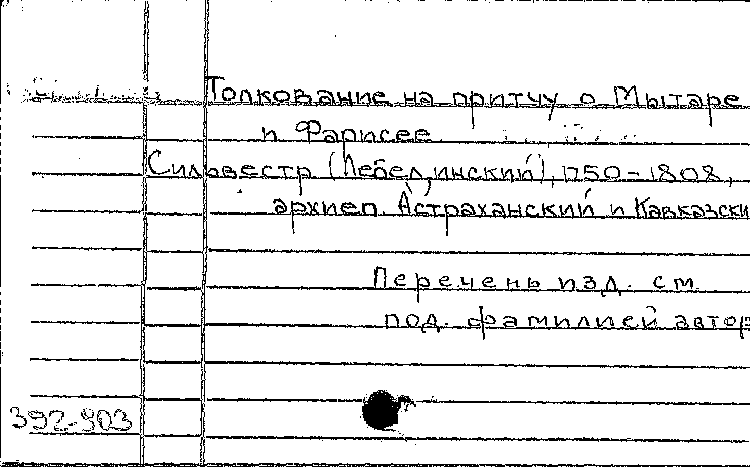 Толкование на притчу о Мытаре
и Фарисее
Сильвестр (Лебединский), 1750-1808,
архиеп. Астраханский и Кавказски
Перечень изд. см.
под фамилией автор
392-903